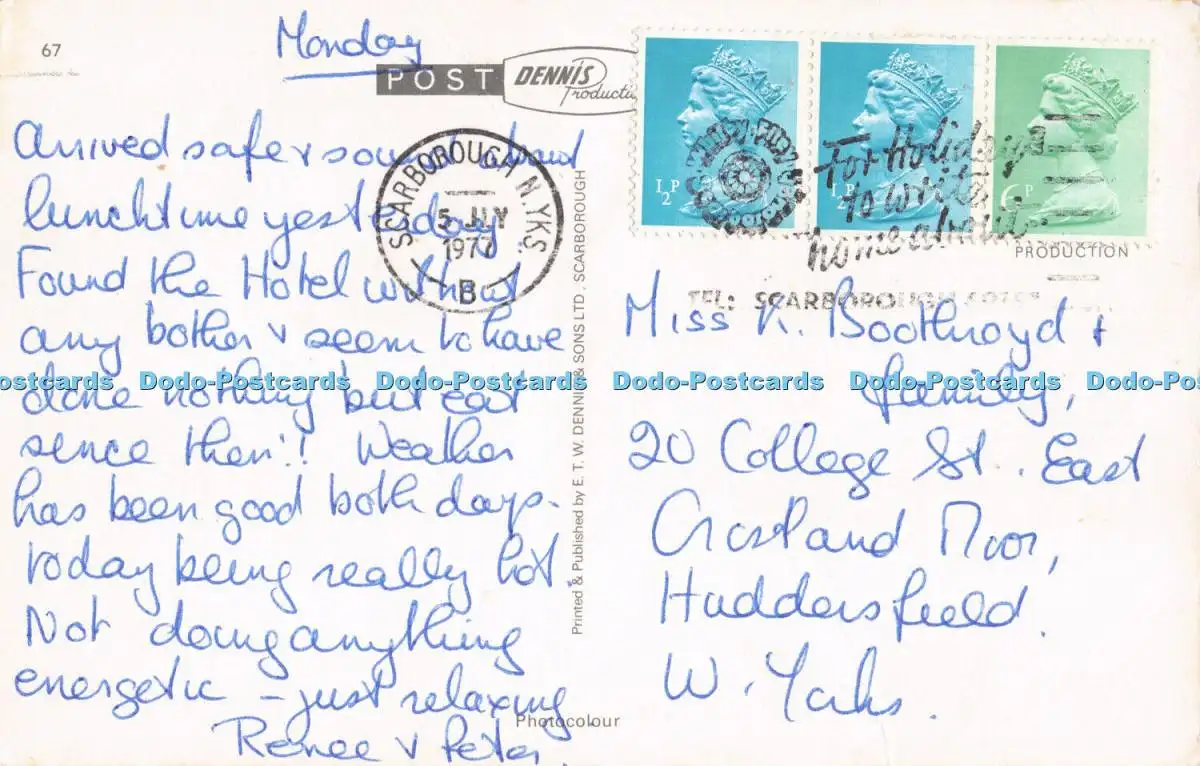 67
Monday
POST
DENNIS
Productio
Arrived safe & sound about
lunchtime yesterday.
Found the Hotel without
any bother & seem to have
done nothing but eat
sence then!! Weather
has been good both days -
today being really hot.
Not doing anything
energetic – just relaxing
Renee & Peter.
SCARBOROUGH N.YKS.
5 JLY
1977
B
Printed & Published by E. T. W. DENNIS & SONS LTD., SCARBOROUGH
Photocolour
½P
½P
6P
For Holidays
to write
home about
PRODUCTION
TEL: SCARBOROUGH
Miss K. Boothroyd &
family,
20 College St. East
Crosland Moor,
Huddersfield.
W. Yorks.
Dodo-Postcards Dodo-Postcards Dodo-Postcards Dodo-Postcards Dodo-Postcards